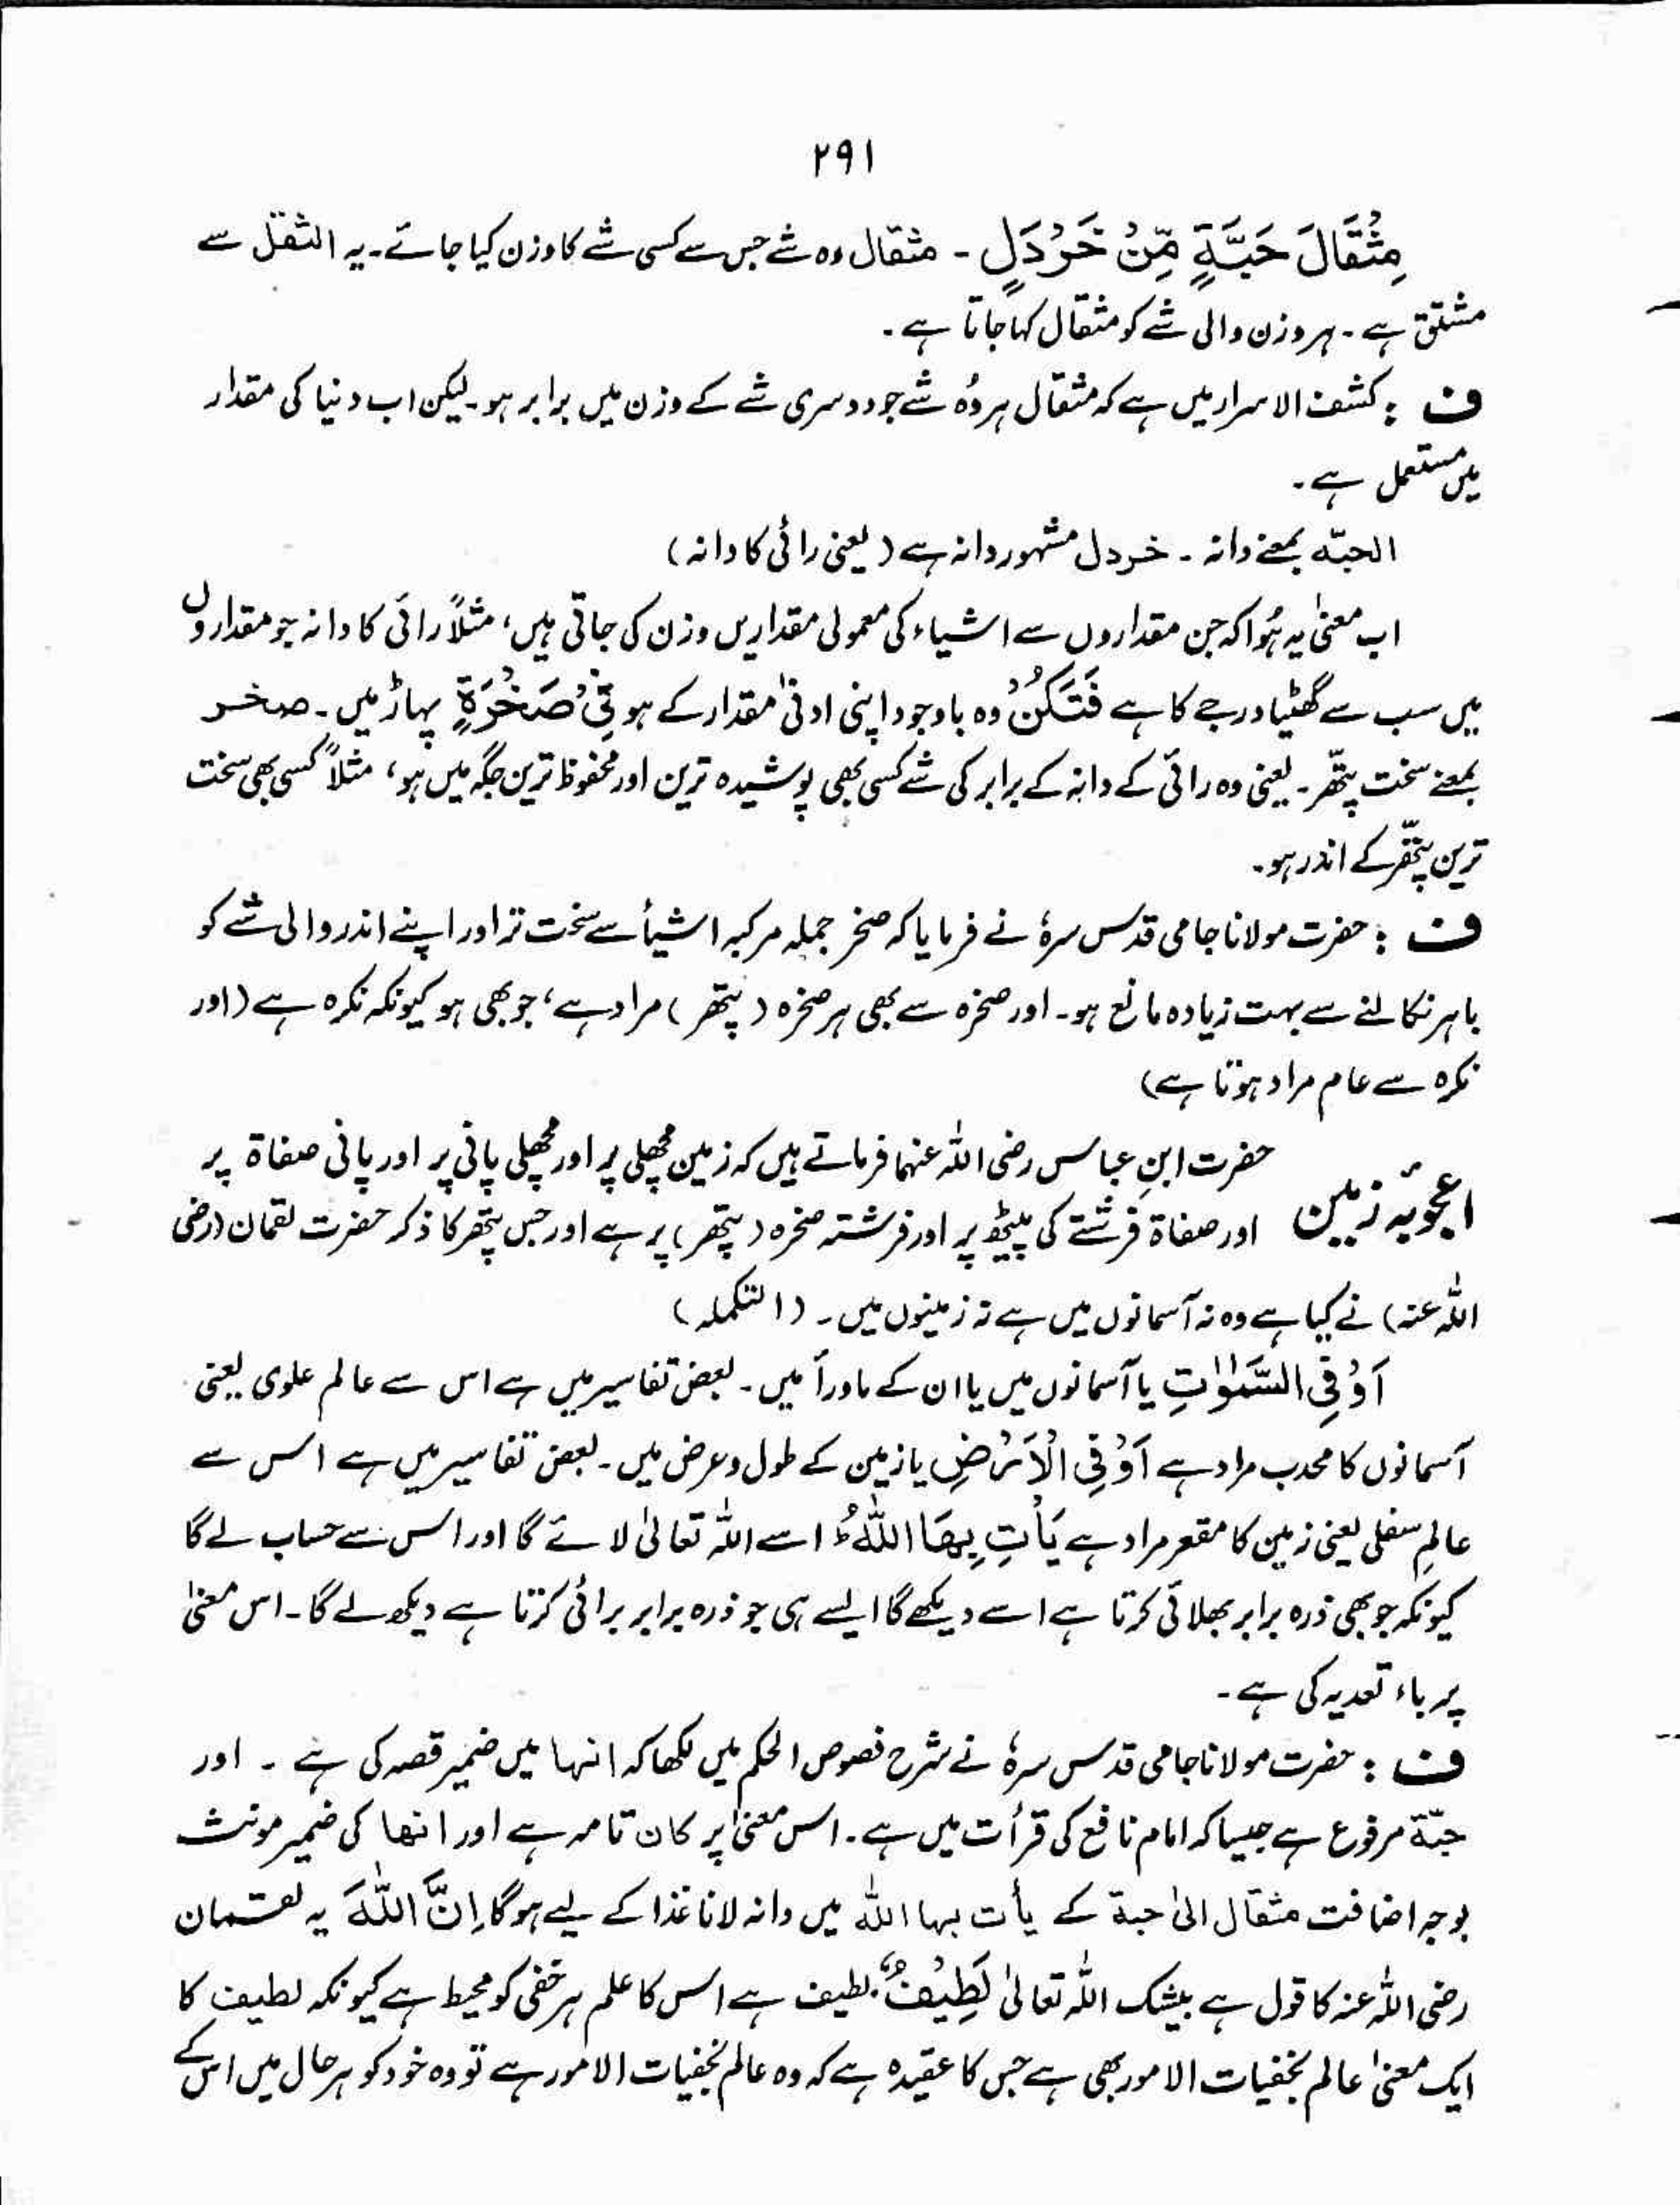 ۲۹۱
مِثْقَالَ حَبَّةٍ مِّنْ خَرْدَلٍ ۔ مثقال وہ شے جس سے کسی شے کا وزن کیا جائے۔ یہ الثقل سے
مشتق ہے۔ ہر وزن والی شے کو مثقال کہا جاتا ہے۔
ف : کشف الاسرار میں ہے کہ مثقال ہر وُہ شے جو دوسری شے کے وزن میں برابر ہو۔ لیکن اب دنیا کی مقدار
میں مستعمل ہے۔
الحبّہ بمعنے دانہ ۔ خردل مشہور دانہ ہے (یعنی رائی کا دانہ)
اب معنیٰ یہ ہُوا کہ جن مقداروں سے اشیاء کی معمولی مقداریں وزن کی جاتی ہیں، مثلاً رائی کا دانہ جو مقداروں
میں سب سے گھٹیا درجے کا ہے فَتَكُنْ وہ باوجود اپنی ادنیٰ مقدار کے ہو فِيْ صَخْرَةٍ پہاڑ میں۔ صخر
بمعنے سخت پتھّر۔ یعنی وہ رائی کے دانہ کے برابر کی شے کسی بھی پوشیدہ ترین اور محفوظ ترین جگہ میں ہو، مثلاً کسی بھی سخت
ترین پتھّر کے اندر ہو۔
ف : حضرت مولانا جامی قدس سرہٗ نے فرمایا کہ صخر جملہ مرکبہ اشیأ سے سخت تر اور اپنے اندر والی شے کو
باہر نکالنے سے بہت زیادہ مانع ہو۔ اور صخرہ سے بھی ہر صخرہ (پتھر) مراد ہے، جو بھی ہو کیونکہ نکرہ ہے (اور
نکرہ سے عام مراد ہوتا ہے)
اعجوبۂ زمین حضرت ابنِ عباس رضی اللہ عنہما فرماتے ہیں کہ زمین مچھلی پر اور مچھلی پانی پر اور پانی صفاۃ پر
اور صفاۃ فرشتے کی پیٹھ پر اور فرشتہ صخرہ (پتھر) پر ہے اور جس پتھر کا ذکر حضرت لقمان (رضی
اللہ عنہ) نے کیا ہے وہ نہ آسمانوں میں ہے نہ زمینوں میں ۔ (التکملہ)
اَوْ فِي السَّمٰوٰتِ یا آسمانوں میں یا ان کے ماورأ میں ۔ بعض تفاسیر میں ہے اس سے عالم علوی یعنی
آسمانوں کا محدب مراد ہے اَوْ فِي الْاَرْضِ یا زمین کے طول و عرض میں۔ بعض تفاسیر میں ہے اس سے
عالمِ سفلی یعنی زمین کا مقعر مراد ہے يَأْتِ بِهَا اللّٰهُ ؕ اسے اللہ تعالیٰ لائے گا اور اس سے حساب لے گا
کیونکہ جو بھی ذرہ برابر بھلائی کرتا ہے اسے دیکھے گا ایسے ہی جو ذرہ برابر برائی کرتا ہے دیکھ لے گا۔ اس معنیٰ
پر باء تعدیہ کی ہے۔
ف : حضرت مولانا جامی قدس سرہٗ نے شرح فصوص الحکم میں لکھا کہ انہا میں ضمیر قصہ کی ہے ۔ اور
حبّۃ مرفوع ہے جیسا کہ امام نافع کی قرأت میں ہے۔ اس معنیٰ پر کان تامہ ہے اور انھا کی ضمیر مونث
بوجہ اضافت مثقال الیٰ حبۃ کے یأت بہا اللہ میں دانہ لانا غذا کے لیے ہوگا اِنَّ اللّٰهَ یہ لقمان
رضی اللہ عنہ کا قول ہے بیشک اللہ تعالیٰ لَطِيْفٌ لطیف ہے اس کا علم ہر خفی کو محیط ہے کیونکہ لطیف کا
ایک معنیٰ عالم بخفیات الامور بھی ہے جس کا عقیدہ ہے کہ وہ عالم بخفیات الامور ہے تو وہ خود کو ہر حال میں اس کے